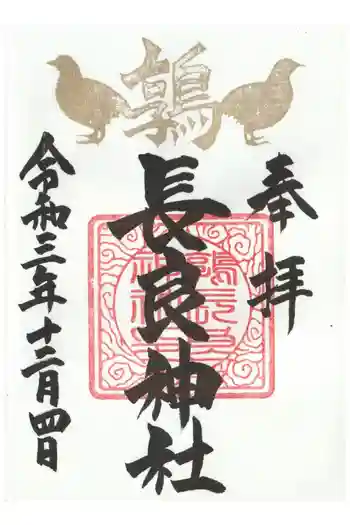 鶉
奉拝
長良神社
令和三年十二月四日